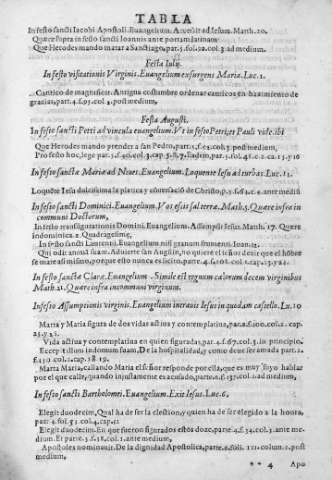 TABLA
In festo sancti Iacobi Apostoli. Euangelium. Accessit ad Iesum. Matth. 20.
Quære supra in festo sancti Ioannis ante portam latinam
Que Herodes mando matar a Sanctiago, par. 3. fol. 12. col. 3. ad medium.
Festa Iulij.
In festo visitationis Virginis. Euangelium exurgens Maria. Luc. 1.
Cantico de magnificat. Antigua costumbre ordenar canticos en hazimiento de
gracias, part. 4. f. 93. col. 3. post medium.
Festa Augusti.
In festo sancti Petri ad vincula euangelium. Vt in festo Petri, et Pauli vide. ibi
Que Herodes mando prender a san Pedro, part. 1. f. col. 3. post medium,
Pro festo hoc, lege par.
In festo sanctæ Mariæ ad Niues. Euangelium. Loquente Iesu ad turbas Luc. 11.
Loquẽte Iesu dulcissima la platica y conuersació de Christo, p. 3. ante mediũ
In festo sancti Dominici. Euangelium. Vos estis sal terræ. Math. 5. Quære infra in
communi Doctorum,
In festo transfigurationis Domini. Euangelium. Assumpsit Iesus. Matth. 17. Quære
in dominica. 2. Quadragesimæ,
In festo sancti Laurentij. Euangelium nisi granum frumenti. Ioan. 12.
Qui odit animã suam. Aduierte san Augustin, no quiere el señor dezir que el hõbre
se mate asi mismo, porque esto nunca es licito, part. 4. f. 106. col. 1.
In festo sanctæ Claræ. Euangelium. Simile est regnum cælorum decem virginibus
Math. 21. Quære infra in communi virginum.
In festo Assumptionis virginis. Euangelium intrauit Iesus in quodam castello. Lu. 10
Marta y Maria figura de dos vidas actiua y contemplatiua, par. 2. f. 100. col. 2. cap.
25. y
Vida actiua y contemplatiua en quien figuradas, par. 4. f. 67. col. 3. in principio.
Excepit illum in domum suam, De la hospitalidad, y como deue ser amada part. 2.
f. 130. col. 1. cap. 18. 19.
Marta Maria, callando Maria el señor responde por ella, que es muy suyo hablar
por el que calle, quando injustamente es acusado, parte. 2. f. 137. col. 2. ad medium,
In festo sancti Bartholomei. Euangelium. Exit Iesus. Luc. 6.
Elegit duodecim, Qual ha de ser la election, y quien ha de ser elegido a la honra,
part. 4. fol. 51. col. 4. cap. 11
Elegit duodecim. En que fueron figurados estos doze, parte. 4. f. 34. col. 3. ante me
dium. Et parte. 3. f. 18. col. 1. ante medium,
Apostoles nominauit. De la dignidad Apostolica, parte. 2. foli. 111. colum. 1. post
medium,
** 4 Apo